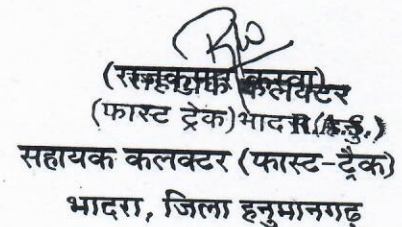 (राजकुमार कस्वा)
सहायक कलक्टर
(फास्ट ट्रेक) भादरा (R.A.S.)
सहायक कलक्टर (फास्ट-ट्रैक)
भादरा, जिला हनुमानगढ़